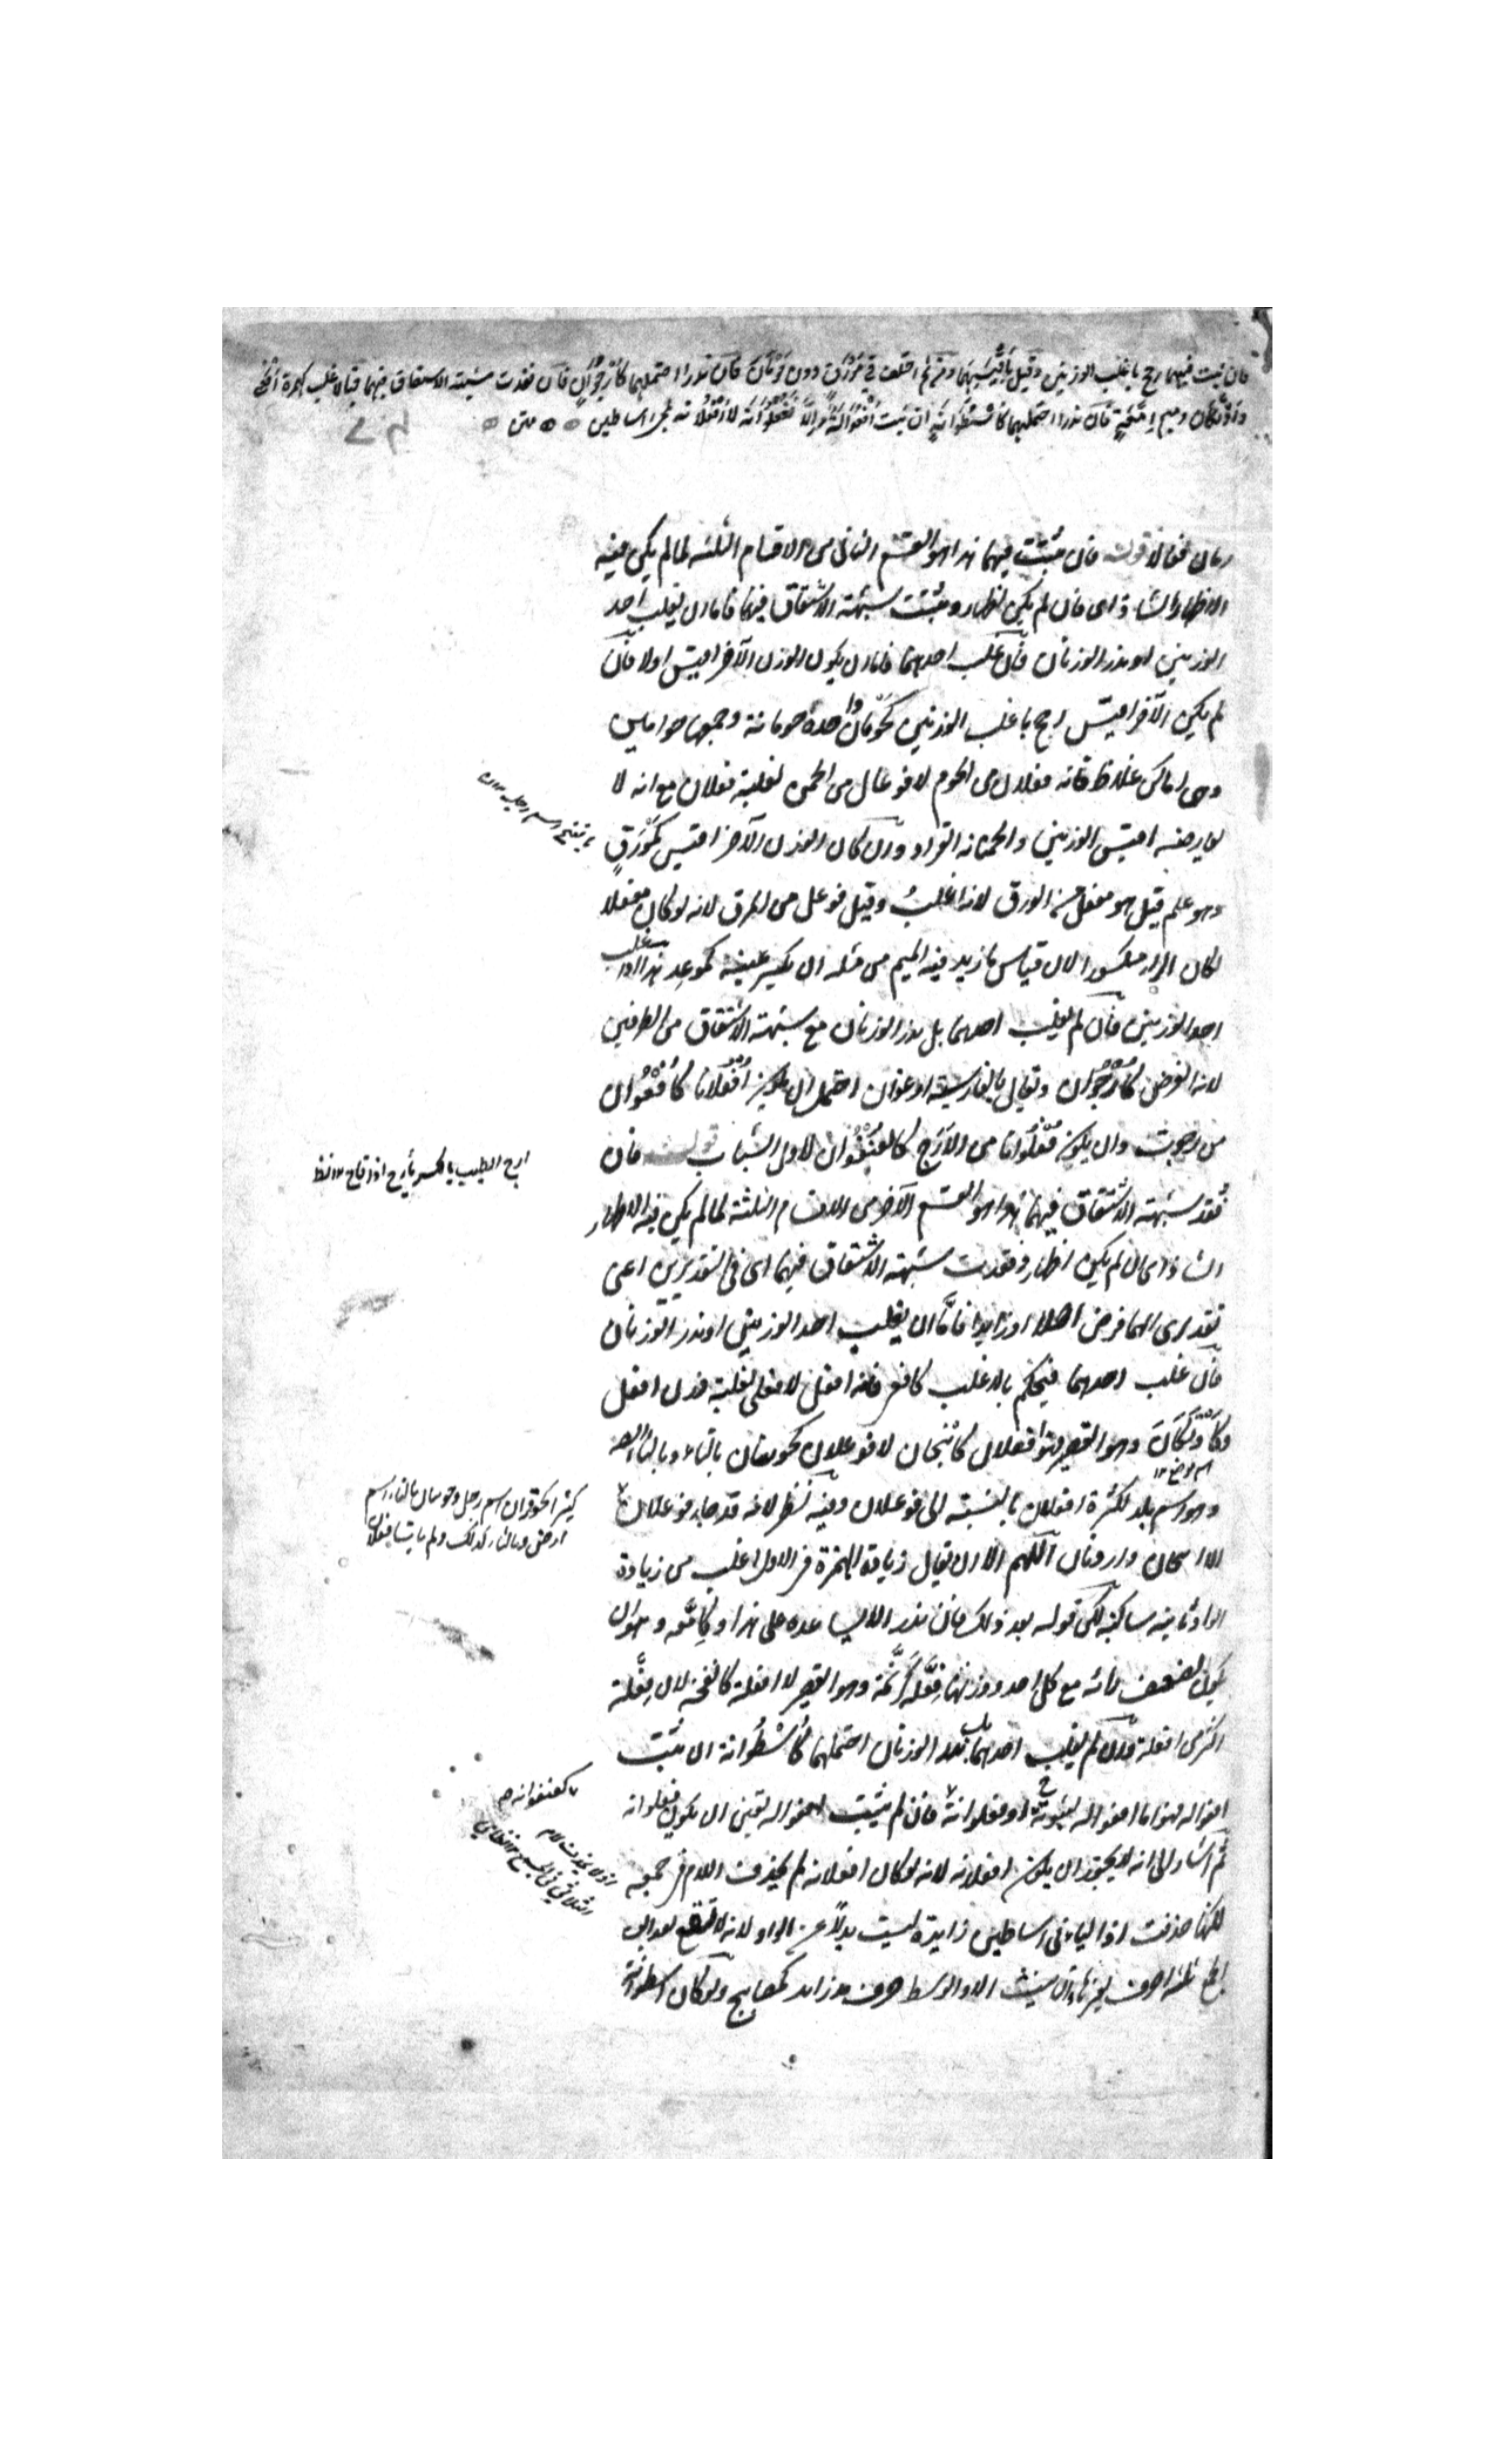 فان ثبت فيهما رجح باغلب الوزنين وقيل باقيسهما ومن ثم اختلف في مَوْرَق دون حَوْمَان فان ندرا احتملهما كأُرْجُوان فان فقدت شبهة الاشتقاق فيهما فبالاغلب كهمزة افعى
واَوْتَكان وميم اِمَّعَةٍ فان ندرا احتملهما كاُسْطُوانَةٍ ان ثبت اُفْعُوَالَةٌ والا فُعْلُوَانَة لا اُفْعُلَانة لمجئ اساطين متن
رمان فعالا قوله فان ثبتت فيهما هذا هو القسم الثانى من الاقسام الثلثة لما لم يكن فيه
الاظهار الشاذ اى فان لم يكن اظهار وثبتت شبهة الاشتقاق فيهما فاما ان يغلب احد
الوزنين او يندر الوزنان فان غلب احدهما فاما ان يكون الوزن الآخر اقيس اولا فان
لم يكن الآخر اقيس رجح باغلب الوزنين كحَوْمان واحدة حومانة وجمعها حوامين
وهى اماكن غلاظ فانه فعلان من الحوم لا فوعال من الحمن لغلبة فعلان مع انه لا
يعارضه اقيس الوزنين والحمنانة القراد وان كان الوزن الآخر اقيس كمَوْرَقٍ
بفتح اسم رجل
وهو علم قيل هو مفعل من الورق لانه اغلبُ وقيل فوعل من المرق لانه لو كان مفعلا
لكان الراء مكسورا لان قياس ما زيد فيه الميم من مثله ان يكسر عينه كموعد هذا اذا غلب
احد الوزنين فان لم يغلب احدهما بل ندر الوزنان مع شبهة الاشتقاق من الطرفين
لانه الفرض كاُرْجُوان ويقال بالفارسية ارغوان احتمل ان يكون اُفْعُلانا كاُفْعُوان
من رجوت وان يكون فُعْلُوانا من الاَرَج كالعُنْفُوان لاول الشباب قوله فان
ارج الطيب بالكسر يأرج اذا فاح
فُقد شبهة الاشتقاق فيهما هذا هو القسم الآخر من الاقسام الثلثة لما لم يكن فيه الاظهار
الشاذ اى ان لم يكن اظهار وفقدت شبهة الاشتقاق فيهما اى فى التقديرين اعنى
تقديرى ايهما فرض اصلا او زايدا فاما ان يغلب احد الوزنين او يندر الوزنان
فان غلب احدهما فيحكم بالاغلب كافعى فانه افعل لا فعلى لغلبة وزن افعل
وكَاَوْتَكَانَ وهو القصير هو افعلان كانبجان لا فوعلان كحوتنان بالتاء وبالثاء
اسم موضع
وهو اسم بلد لكثرة افعلان بالنسبة الى فوعلان وفيه نظر لانه قد جاء فوعلان
كثيرا كحوفزان اسم رجل وحوتنان بالتاء اسم
ارض وبالثاء كذلك ولم يأت افعلان
الا انبجان وارونان اللهم الا ان يقال زيادة الهمزة فى الاول اغلب من زيادة
الواو ثانية ساكنة لكن قوله بعد ذلك فان ندرا لا يساعده على هذا وكاِمَّعة وهو ان
يكون لضعف رأيه مع كل احد ووزنها فِعَّلَة كدِنَّمة وهو القصير لا افعلة كانفحة لان فِعَّلة
اكثر من افعلة وان لم يغلب احدهما بل ندر الوزنان احتملهما كاُسْطُوانة ان ثبت
افعوالة فهو اما افعوالة او فعلوانة فان لم يثبت افعوالة تعين ان يكون فعلوانة
كعنفوانة
ثم اشار الى انه لا يجوز ان يكون افعلانة لانه لو كان افعلانة لم يحذف اللام فى جمعه
لكنها حذفت اذ الياء فى اساطين زايدة ليست بدلًا عن الواو لانه لا تقع بعد الف
الجمع ثلثة احرف بغير هاء تانيث الا والاوسط حرف مد زايد كمصابيح ولو كان اسطوانة